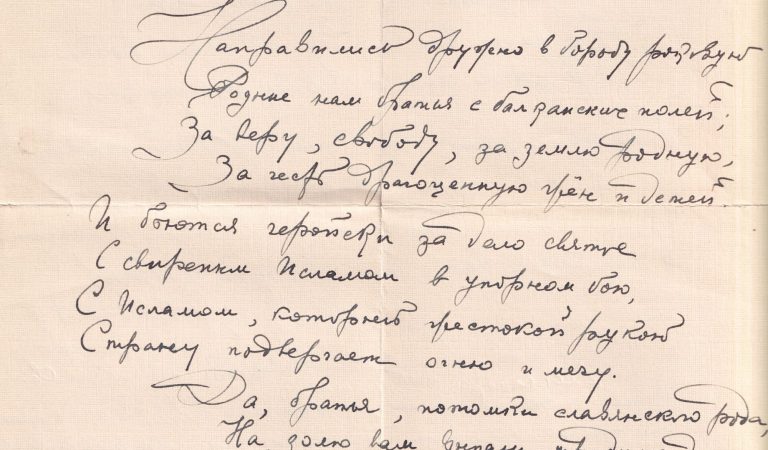 Направились дружно в борьбу роковую
Родные нам братья с балканских полей;
За веру, свободу, за землю родную,
За честь драгоценную жён и детей.
И боются геройски за дело святое
С свирепым Исламом в упорном бою,
С Исламом, который жестокой рукой
Страну подвергает огню и мечу.
Да, братья, потомки славянского рода,
На долю вам выпали